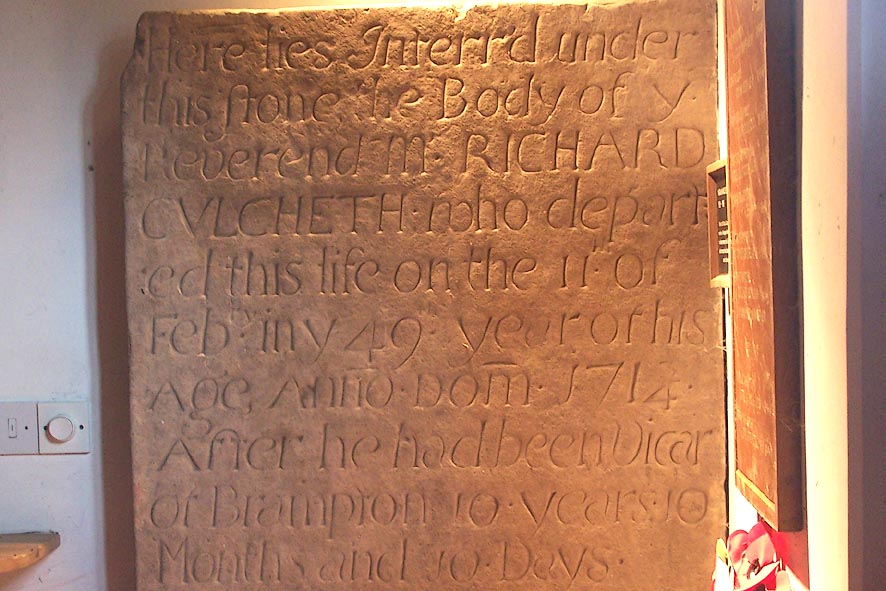 Here lies Interr'd under
this stone the Body of y
Reverend Mr. RICHARD
CVLCHETH · who depart
:ed this life on the 11· of
Febry. in y 49 year of his
Age, Anno · Dom · 1714 ·
After he had been Vicar
of Brampton 10 · years · 10
Months and 10 · Days ·